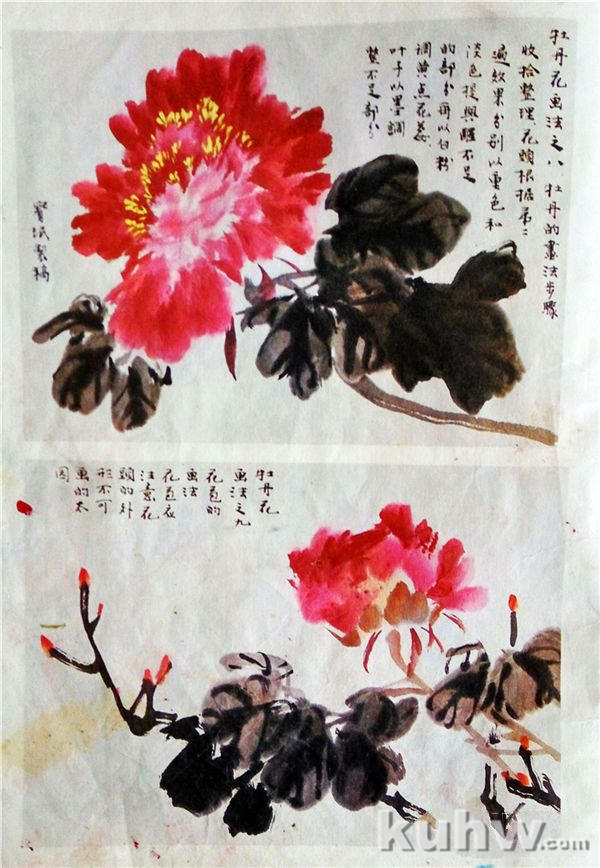 牡丹花画法之八 牡丹的畫法步驟
收拾整理花頭根据第二
遍效果分别以重色和
淡色提興醒不足
的部分再以白粉
調黄点花蕊
叶子以墨調
整不足部分
牡丹花
画法之九
花苞的
画法
花苞应
注意花
頭的外
形不可
画的太
圆
kuhw.com